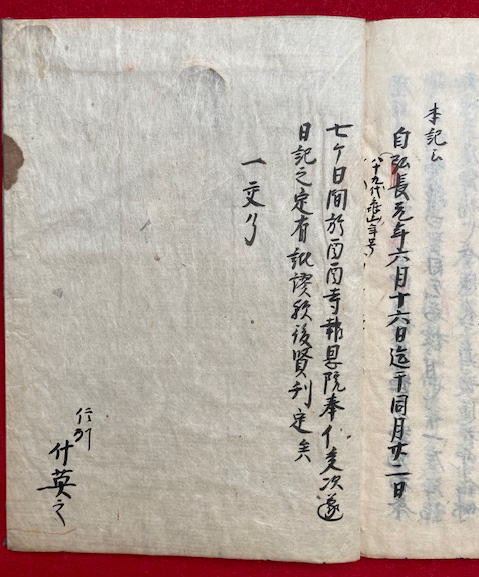 本記云
自弘長元年六月十六日迄于同月廿二日
八十九代亀山年号
七ケ日間於西西寺報恩院奉行走次遂
日記之定有訛謬欤後賢刊定矣
一交了
什英之